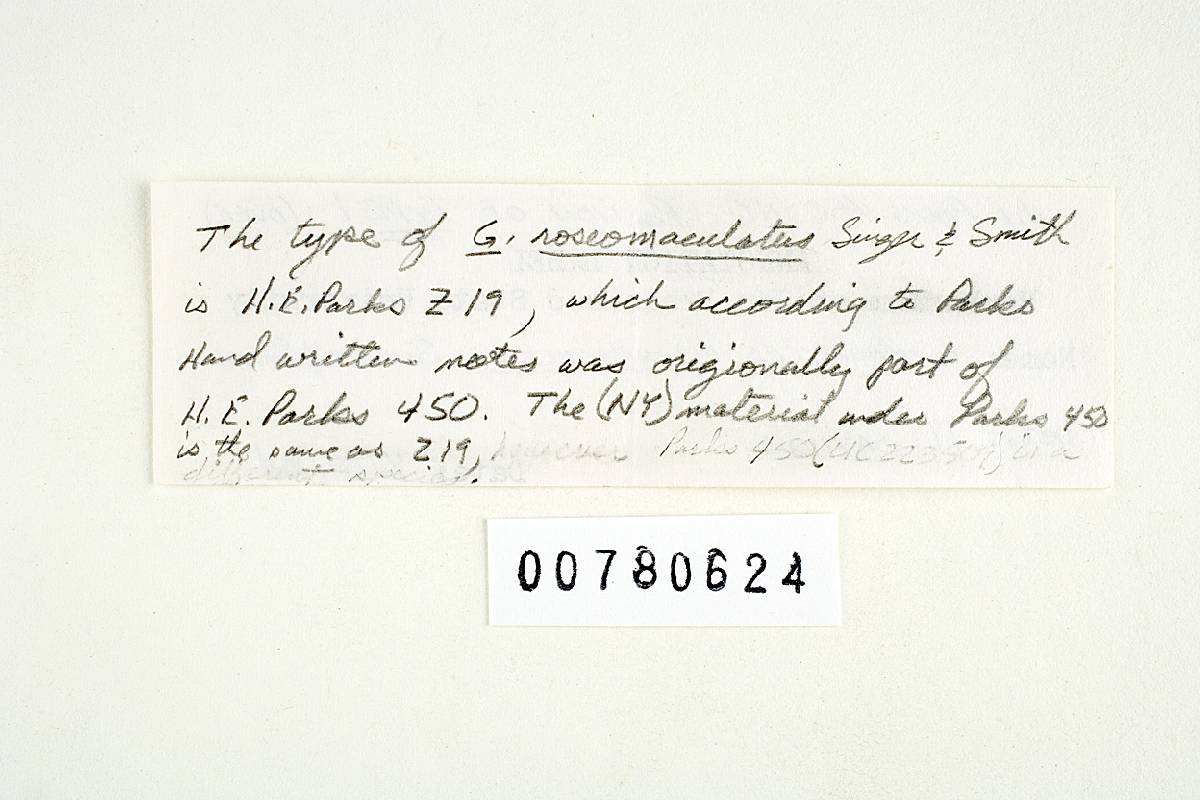 The type of G. roseomaculatus Singer & Smith
is H.E. Parks Z 19, which according to Parks
Hand written notes was origionally part of
H. E. Parks 450. The (NY) material under Parks 450
is the same as Z 19, however Parks 450 (UC 223504) is a
different species.
00780624